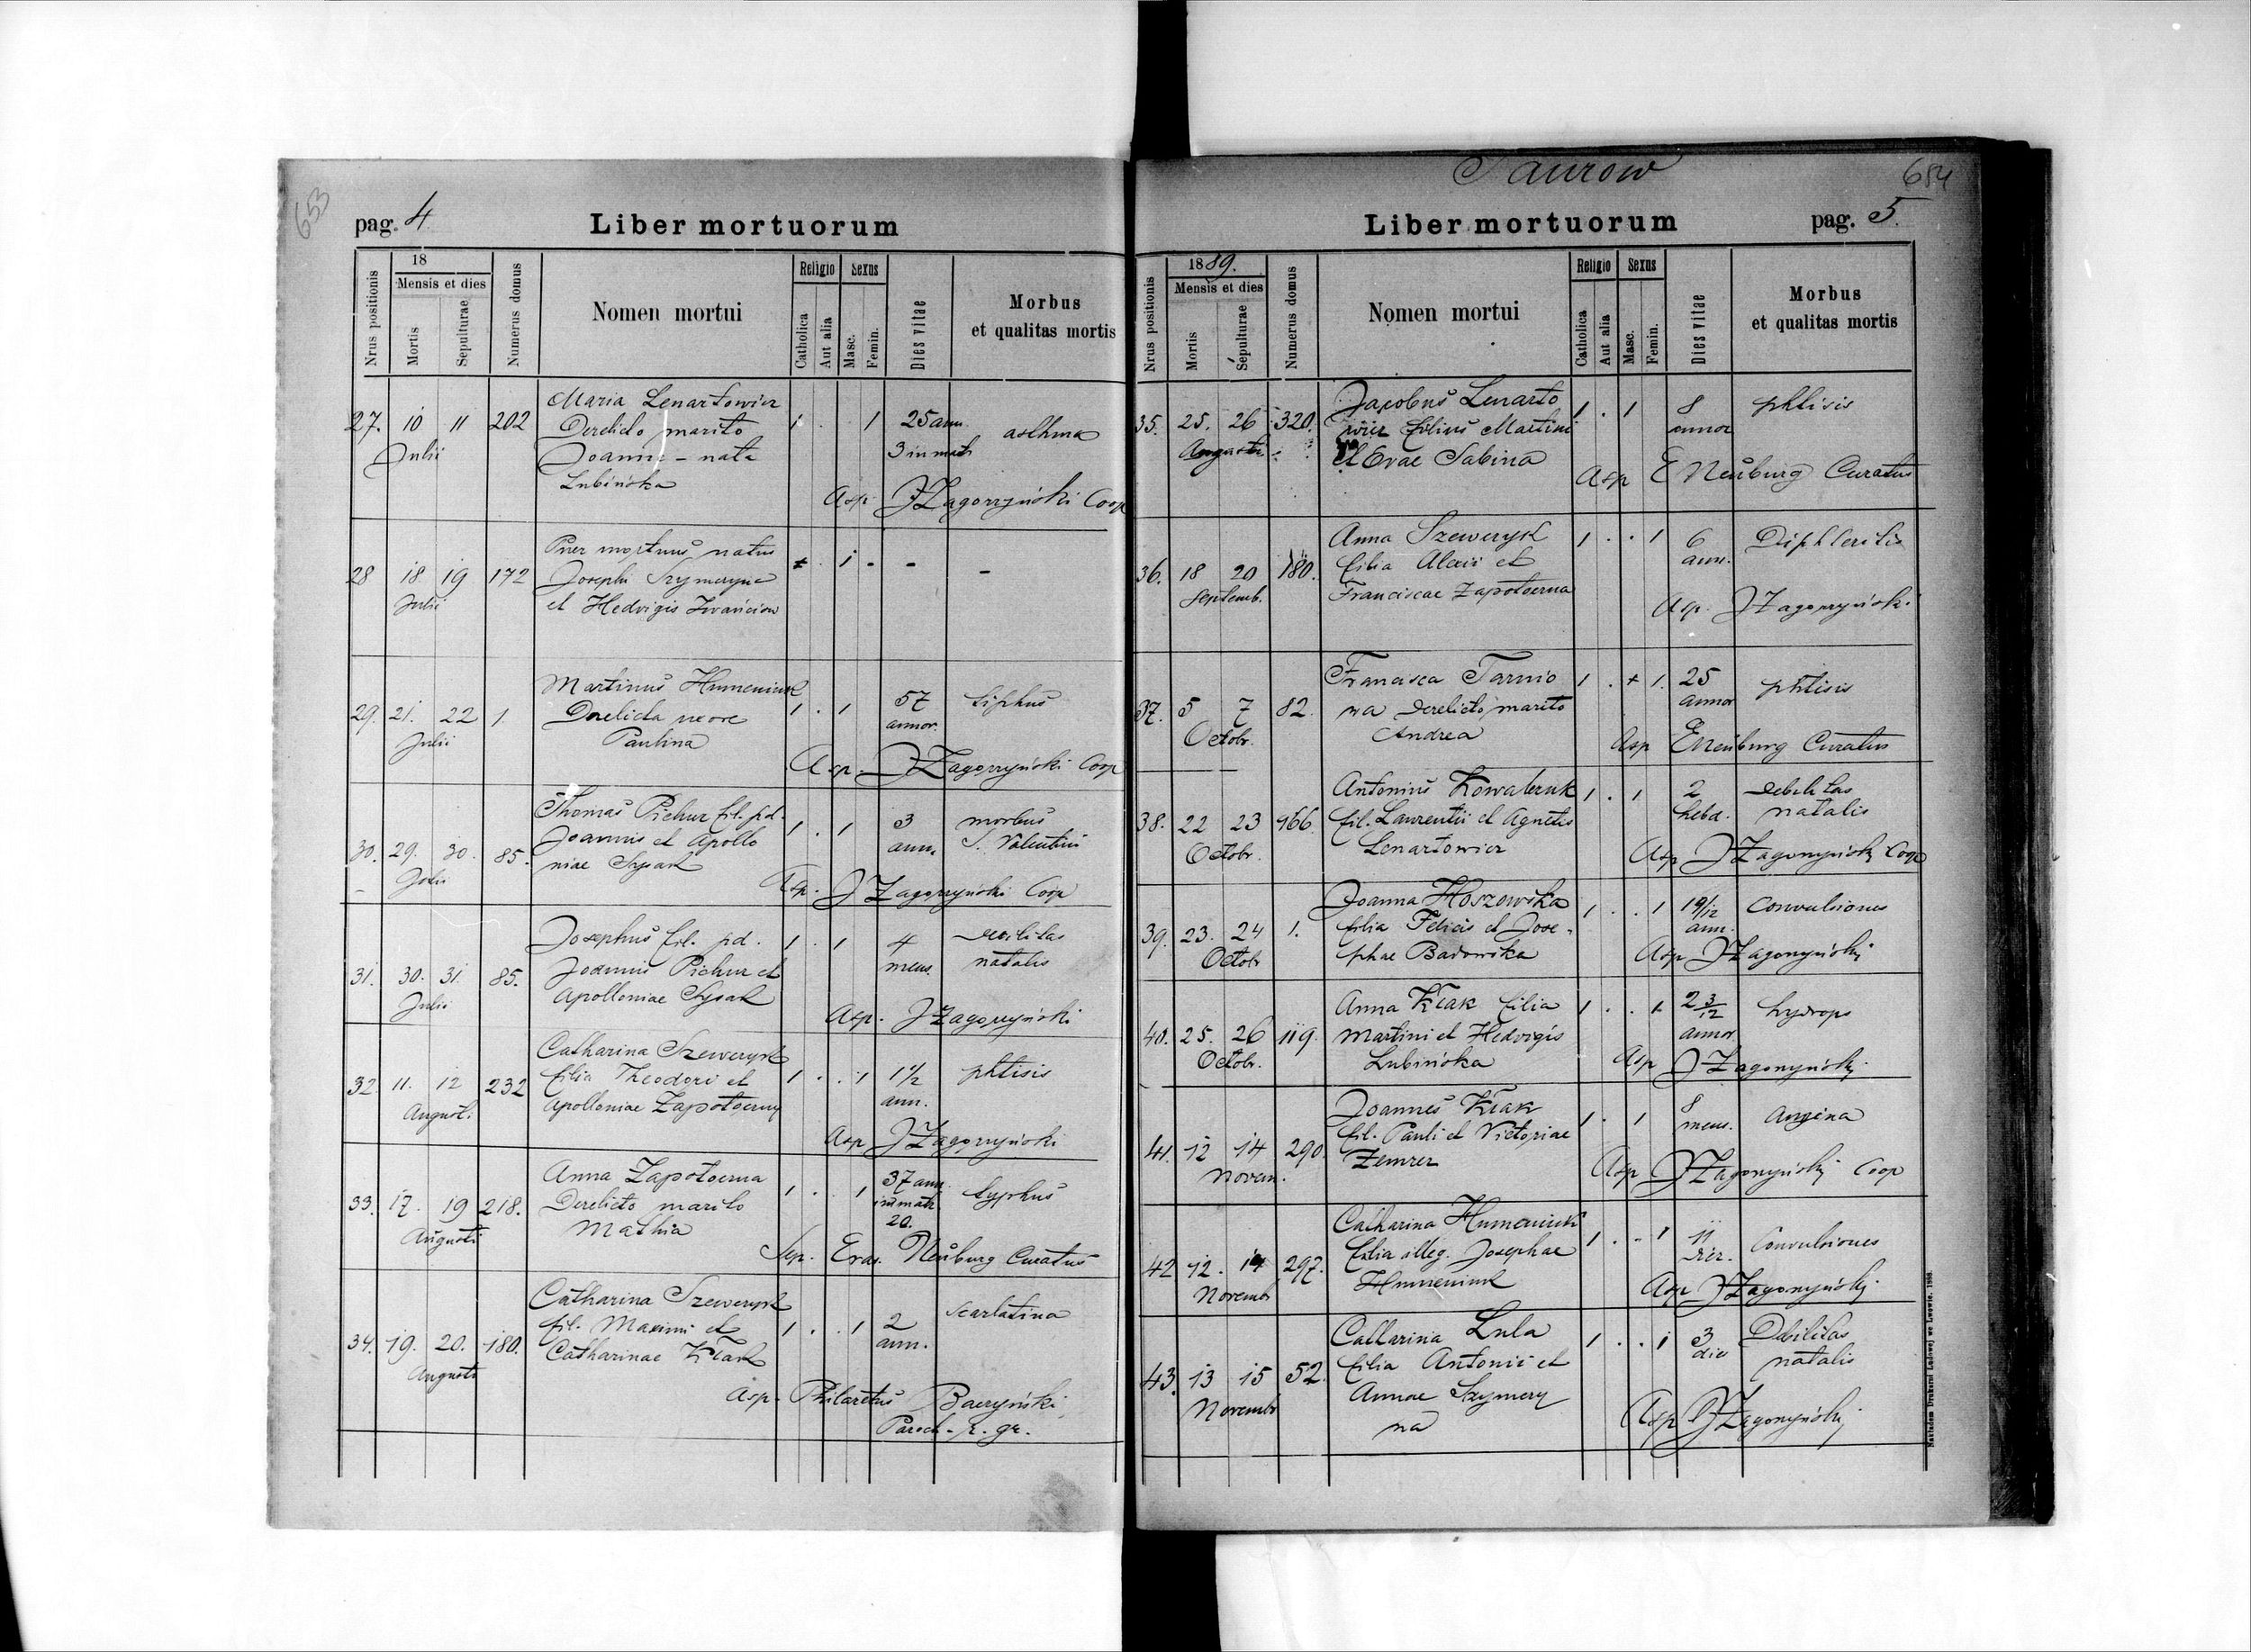 653
pag. 4
Liber mortuorum
Nrus positionis
18
Mensis et dies
Mortis
Sepulturae
Numerus domus
Nomen mortui
Religio
Catholica
Aut alia
Sexus
Masc.
Femin.
Dies vitae
Morbus
et qualitas mortis
Maria Lenartowicz
27. 10 11 202 Derelicto marito 1 . 1 25 ann.
Julii Joanne - nata 3 in matr asthma
Lubińska
Asp. J Zagorzyński Coop
Puer mortuus natus
28 18 19 172 Josephi Szymeryna . 1 - - -
Julii et Hedvigis Iwańciow
Martinus Humeniuk
29. 21. 22 1. Derelicta uxore 1 . 1 57 tiphus
Julii Paulina annor.
Asp. J Zagorzyński Coop
Thomas Pichur fil. pd.
30. 29. 30. 85. Joannis et Apollo 1 . 1 3 morbus
Julii niae Sysak ann. S. Valentini
Asp. J Zagorzyński Coop
Josephus fil. pd. 1 . 1 4
31. 30. 31. 85. Joannis Pichur et mens. natalis
Julii Apolloniae Sysak
Asp. J Zagorzyński
Catharina Szeweryk
32. 11. 12 232 filia Theodori et 1 . . 1 1 1/2 phtisis
August. Apolloniae Zapotoczny ann.
Asp J Zagorzyński
Anna Zapotoczna 37 ann.
33. 17. 19 218. Derelicto marito 1 . 1 in matr. typhus
Augusti Mathia 20.
Sep. Eras. Neuburg Curatus
Catharina Szeweryk
34. 19. 20. 180. fil. Maximi et 1 . . 1 2 Scarlatina
Augusti Catharinae Kiak ann.
Asp. Philaretus Baczyński
Paroch. r. gr.
Taurow
654
Liber mortuorum
pag. 5.
Nrus positionis
1889.
Mensis et dies
Mortis
Sepulturae
Numerus domus
Nomen mortui
Religio
Catholica
Aut alia
Sexus
Masc.
Femin.
Dies vitae
Morbus
et qualitas mortis
Jacobus Lenarto
35. 25. 26 320. wicz filius Martini 1 . 1 8 phtisis
Augusti et Evae Sabina annor
Asp E Neuburg Curatus
Anna Szeweryk
36. 18 20 180. filia Alexii et 1 . . 1 6 Diphteritis
Septemb. Franciscae Zapotoczna ann.
Asp. J Zagorzyński
Francisca Tarnio
37. 5 7 82. wa derelicto marito 1 . 1. 25 phtisis
Octobr. Andrea annor
Asp E Neuburg Curatus
Antonius Kowalczuk
38. 22 23 166. fil. Laurentii et Agnetis 1 . 1 2 debilitas
Octobr. Lenartowicz hebd. natalis
Asp J Zagorzyński Coop
Joanna Hoszowska
39. 23. 24 1. filia Felicis et Jose- 1 . . 1 10/12 Convulsiones
Octobr phae Badowska ann.
Asp J Zagorzyński
Anna Kiak filia
40. 25. 26 119. Martini et Hedvigis 1 . . 1 2 3/12 hydrops
Octobr. Lubińska annor
Asp J Zagorzyński
Joannes Kiak
41. 12 14 290. fil. Pauli et Victoriae 1 . 1 8 Angina
Novem. Zemrez mens.
Asp J Zagorzyński Coop
Catharina Humeniuk
42 12. 14 297. filia illeg. Josephae 1 . . 1 11 Convulsiones
Novembr Humeniuk dier.
Asp J Zagorzyński
Catharina Lula
43. 13 15 52. filia Antonii et 1 . . 1 3 Debilitas
Novembr Annae Szymery dier natalis
na
Asp J Zagorzyński
Nakładem Drukarni Ludowej we Lwowie. 1888.